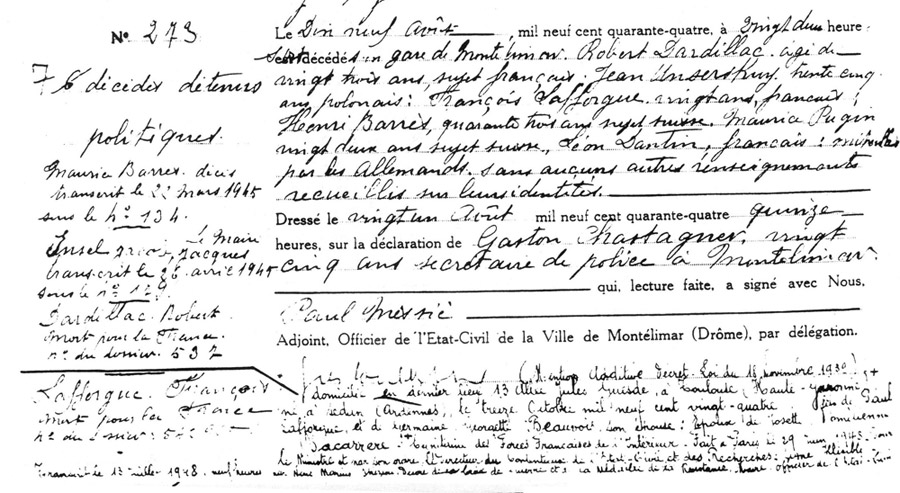 Nº 273
6 décidés détenus
politiques.
Maurice Barres. décès
transcrit le 22 mars 1945
sous le nº 134.
Le Maire
Jacques
transcrit le 26 avril 1945
sous le nº 179.
Dardillac Robert.
Mort pour la France.
nº du dossier. 537
Lafforgue François
Mort pour la France
nº du dossier
Le Dix neuf Août, mil neuf cent quarante-quatre, à vingt deux heure
sont décédés en gare de Montélimar. Robert Dardillac. âgé de
vingt trois ans, sujet français. Jean trente cinq
ans, polonais: François Lafforgue. vingt ans, français;
Henri Barrès, quarante trois ans sujet suisse. Maurice Pugin
vingt deux ans sujet suisse, Léon Dantin, français:
par les Allemands. sans aucuns autres renseignements
recueillis sur leurs identités.
Dressé le vingt un Août mil neuf cent quarante-quatre quinze
heures, sur la déclaration de Gaston Chastagner, vingt
cinq ans secrétaire de police à Montélimar
qui, lecture faite, a signé avec Nous,
Paul Messié
Adjoint, Officier de l'Etat-Civil de la Ville de Montélimar (Drôme), par délégation.
(Mention Additive Décret-Loi du novembre 1939)
domicilié en dernier lieu 13 Allée Jules Guesde, à Toulouse (Haute-Garonne)
né à Sedan (Ardennes), le treize Octobre mil neuf cent vingt-quatre fils de Paul
Lafforgue, et de Germaine Georgette Beauvois son épouse: Epoux de
Lacarrère des Forces Françaises de l'Intérieur. Fait à Paris le 29 1945
Le Ministre et par son ordre, le Directeur du Contentieux de l'Etat-Civil et des Recherches: signé illisible.
Transcrit le 13 juillet 1948. neuf heures